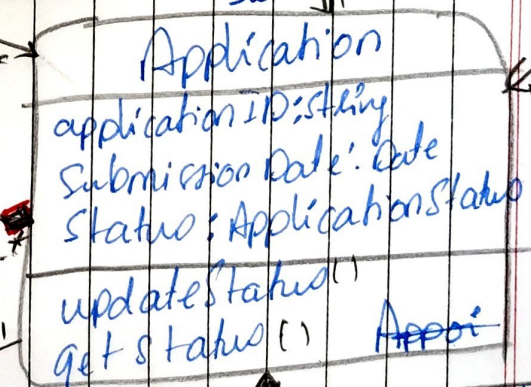 Application
applicationID:string
SubmissionDate:Date
Status:ApplicationStatus
updateStatus()
getstatus() Appoi